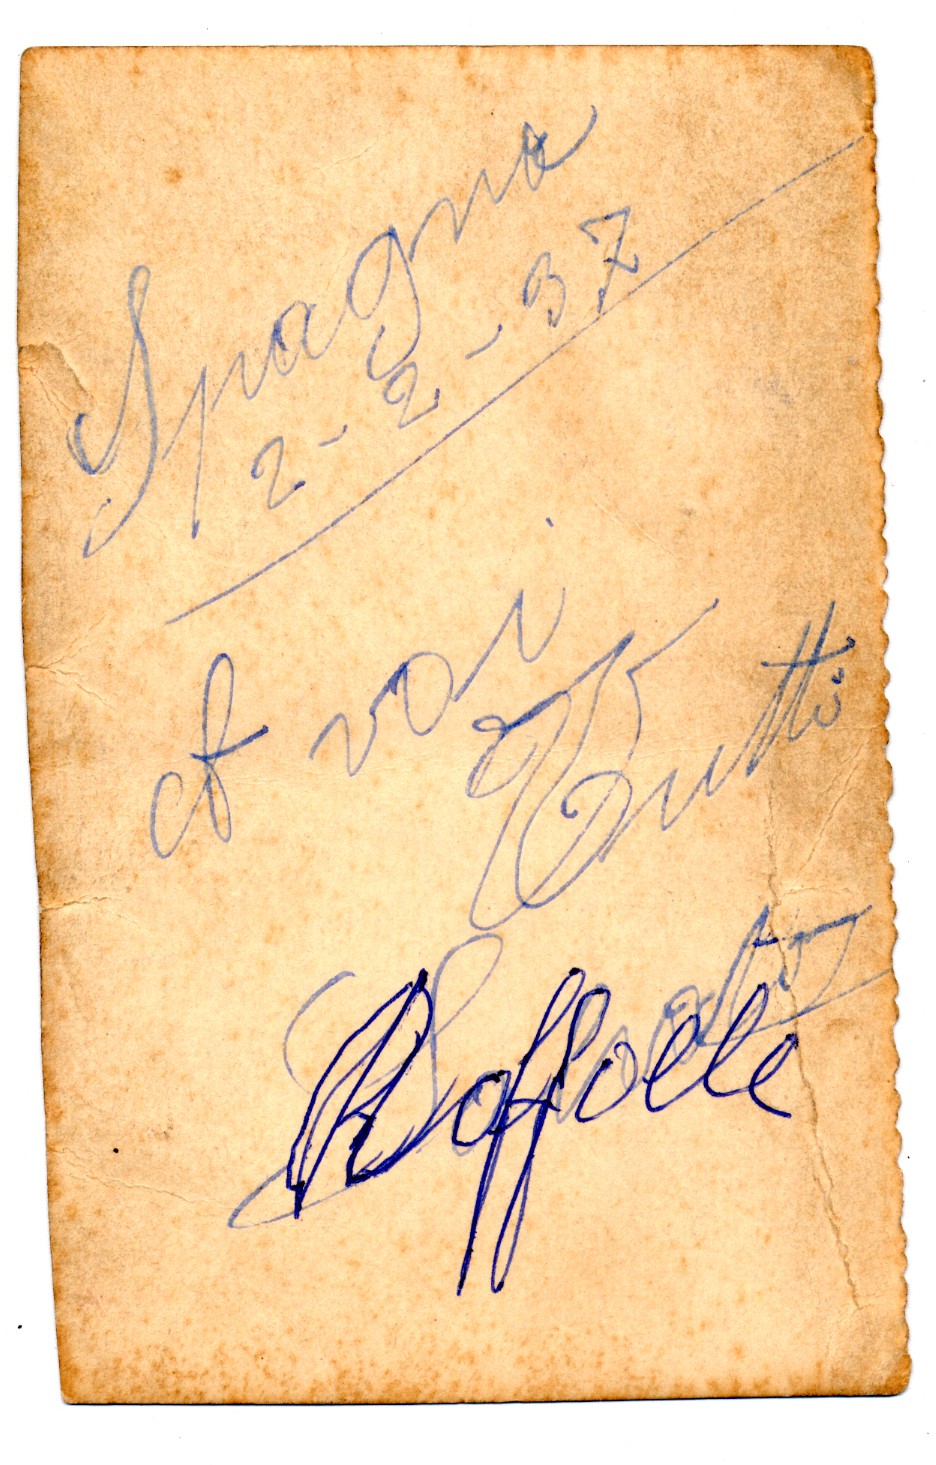 Spagna
2-2-37
A voi
Tutti
Raffaele